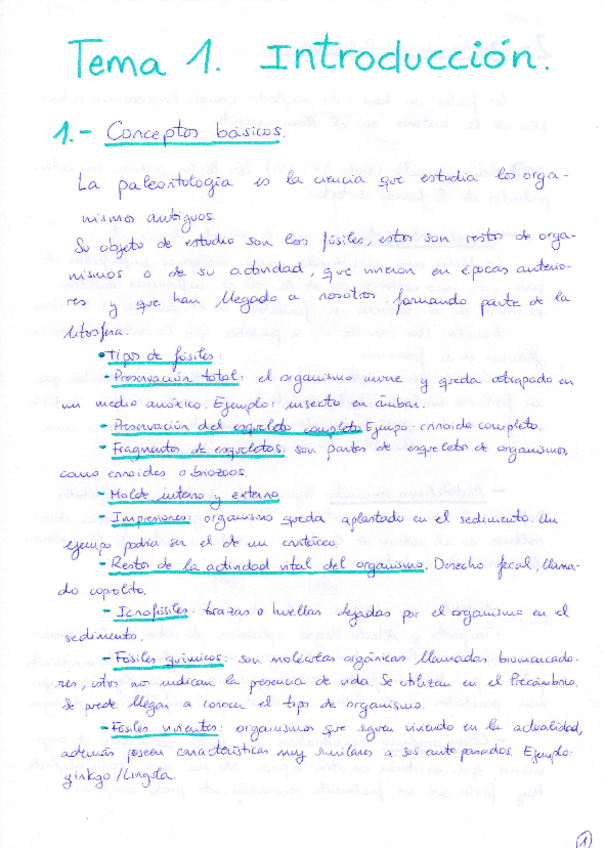 Tema 1. Introducción.
1.- Conceptos básicos.
La paleontología es la ciencia que estudia los orga-
nismos antiguos.
Su objeto de estudio son los fósiles, estos son restos de orga-
nismos o de su actividad, que vivieron en épocas anterio-
res y que han llegado a nosotros formando parte de la
litosfera.
• Tipos de fósiles:
- Preservación total: el organismo muere y queda atrapado en
un medio anóxico. Ejemplo: insecto en ámbar.
- Preservación del esqueleto completo. Ejempo: crinoide completo.
- Fragmentos de esqueletos: son partes de esqueletos de organismos,
como crinoides o briozoos.
- Molde interno y externo.
- Impresiones: organismo queda aplastado en el sedimento. Un
ejempo podría ser el de un crustáceo.
- Restos de la actividad vital del organismo. Desecho fecal, llama-
do copolito.
- Icnofósiles: trazas o huellas dejadas por el organismo en el
sedimento.
- Fósiles químicos: son moléculas orgánicas llamadas biomarcado-
res, estos nos indican la presencia de vida. Se utilizan en el Precámbrico.
Se puede llegar a conocer el tipo de organismo.
- Fósiles vivientes: organismos que siguen viviendo en la actualidad,
además poseen características muy similares a sus antepasados. Ejemplo:
ginkgo / Lingula.
1